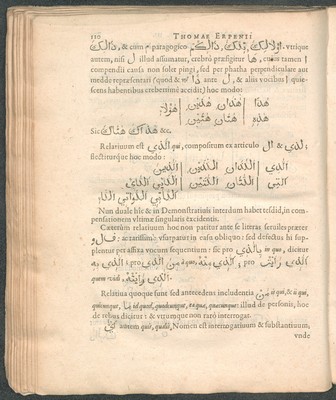 110 THOMAE ERPENII
اولالك, ذلك, ذالكم, & cum م paragogico utrique
autem, nisi ل illud assumatur, crebrò præfigitur ها, cuius tamen ا
compendii causâ non solet pingi, sed per phatha perpendiculare aut
medde repræsentari (quod & ذا ante ل, & aliis vocibus quie-
scens habentibus creberrimè accidit) hoc modo:
هذا هذان هذين هولا
هذه هتان هتين
Sic هذاك هتاك &c.
Relativum est الذي qui, compositum ex articulo ال & لذي;
flectiturque hoc modo:
الذي اللذان اللذين الذين
التي اللتان اللتين اللاتي
اللواتي
Nun duale hîc & in Demonstrativis interdum habet tesdid, in com-
pensationem ultimæ singularis excidentis.
Cæterùm relativum hoc non patitur ante se literas serviles præter
و, ف, ل: ac rarissimè usurpatur in casu obliquo: sed defectus hi sup-
plentur per affixa vocum sequentium: sic pro بالذي in quo, dicitur
الذي به; pro من الذي à quo, الذي منه; pro الذي رايت
quem vidi, الذي رايته.
Relativa quoque sunt sed antecedens includentia من is qui, & ii qui,
quicunque, ما id quod, quodcunque, ea quæ, quæcunque: illud de personis, hoc
de rebus dicitur: & utrumque non rarò interrogat.
اي autem quis, qualis, Nomen est interrogativum & substantivum,
unde